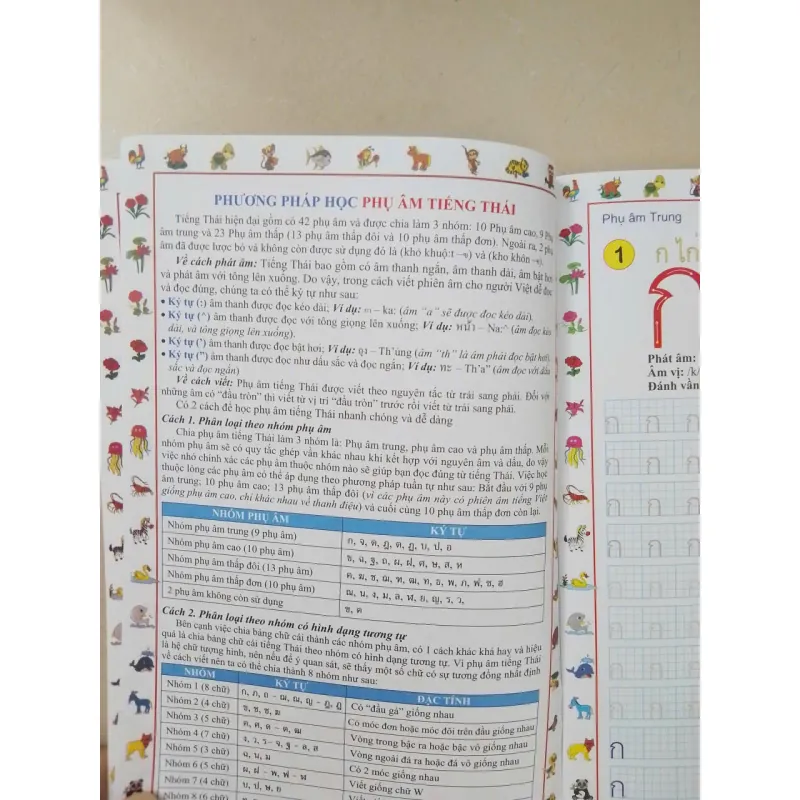 PHƯƠNG PHÁP HỌC PHỤ ÂM TIẾNG THÁI
Tiếng Thái hiện đại gồm có 42 phụ âm và được chia làm 3 nhóm: 10 Phụ âm cao, 9 Phụ
âm trung và 23 Phụ âm thấp (13 phụ âm thấp đôi và 10 phụ âm thấp đơn). Ngoài ra, 2 phụ
âm đã được lược bỏ và không còn được sử dụng đó là (kho khuột –ฃ) và (kho khôn –ฅ).
Về cách phát âm: Tiếng Thái bao gồm có âm thanh ngắn, âm thanh dài, âm bật hơi
và phát âm với tông lên xuống. Do vậy, trong cách viết phiên âm cho người Việt dễ đọc
và đọc đúng, chúng ta có thể ký tự như sau:
• Ký tự (:) âm thanh được đọc kéo dài; Ví dụ: – ka: (âm “a” sẽ được đọc kéo dài).
• Ký tự (^) âm thanh được đọc với tông giọng lên xuống; Ví dụ: หน้า – Na:^ (âm đọc kéo
dài, và tông giọng lên xuống).
• Ký tự (’) âm thanh được đọc bật hơi; Ví dụ: ถุง – Th’ủng (âm “th” là âm phải đọc bật hơi).
• Ký tự (”) âm thanh được đọc như dấu sắc và đọc ngắn; Ví dụ: – Th’a” (âm đọc với dấu
sắc và đọc ngắn)
Về cách viết: Phụ âm tiếng Thái được viết theo nguyên tắc từ trái sang phải. Đối với
những âm có “đầu tròn” thì viết từ vị trí “đầu tròn” trước rồi viết từ trái sang phải.
Có 2 cách để học phụ âm tiếng Thái nhanh chóng và dễ dàng
Cách 1. Phân loại theo nhóm phụ âm
Chia phụ âm tiếng Thái làm 3 nhóm là: Phụ âm trung, phụ âm cao và phụ âm thấp. Mỗi
nhóm phụ âm sẽ có quy tắc ghép vần khác nhau khi kết hợp với nguyên âm và dấu, do vậy
việc nhớ chính xác các phụ âm thuộc nhóm nào sẽ giúp bạn đọc đúng từ tiếng Thái. Việc học
thuộc lòng các phụ âm có thể áp dụng theo phương pháp tuần tự như sau: Bắt đầu với 9 phụ
âm trung; 10 phụ âm cao; 13 phụ âm thấp đôi (vì các phụ âm này có phiên âm tiếng Việt
giống phụ âm cao, chỉ khác nhau về thanh điệu) và cuối cùng 10 phụ âm thấp đơn còn lại.
NHÓM PHỤ ÂM KÝ TỰ
Nhóm phụ âm trung (9 phụ âm) ก, จ, ด, ฎ, ต, ฏ, บ, ป, อ
Nhóm phụ âm cao (10 phụ âm) ข, ฉ, ฐ, ถ, ผ, ฝ, ศ, ษ, ส, ห
Nhóm phụ âm thấp đôi (13 phụ âm) ค, ฆ, ช, ฌ, ฑ, ฒ, ท, ธ, พ, ภ, ฟ, ซ, ฮ
Nhóm phụ âm thấp đơn (10 phụ âm) ณ, น, ง, ม, ล, ฬ, ย, ญ, ร, ว,
2 phụ âm không còn sử dụng ฃ, ฅ
Cách 2. Phân loại theo nhóm có hình dạng tương tự
Bên cạnh việc chia bảng chữ cái thành các nhóm phụ âm, có 1 cách khác khá hay và hiệu
quả là chia bảng chữ cái tiếng Thái theo nhóm có hình dạng tương tự. Vì phụ âm tiếng Thái
là hệ chữ tượng hình, nên nếu để ý quan sát, sẽ thấy một số chữ có sự tương đồng nhất định
về cách viết nên ta có thể chia thành 8 nhóm như sau:
NHÓM KÝ TỰ ĐẶC TÍNH
Nhóm 1 (8 chữ) ก, ภ, ถ - ฌ, ณ, ญ - ฎ, ฏ Có “đầu gà” giống nhau
Nhóm 2 (4 chữ) Có móc đơn hoặc móc đôi trên đầu giống nhau
Nhóm 3 (5 chữ) Vòng trong bậc ra hoặc bậc vô giống nhau
Nhóm 4 (7 chữ) Vòng ngoài đá ra hoặc đá vô giống nhau
Nhóm 5 (3 chữ) Có 2 móc giống nhau
Nhóm 6 (5 chữ) ผ, ฝ - พ, ฟ - ฬ Viết giống chữ W
Nhóm 7 (4 chữ) บ, ป, ษ,
Nhóm 8 (6 chữ)
Phụ âm Trung
1
ก ไก่
ก
Phát âm:
Âm vị: /k/
Đánh vần
ก ก ก
ก ก ก
ก ก ก
ก
ก